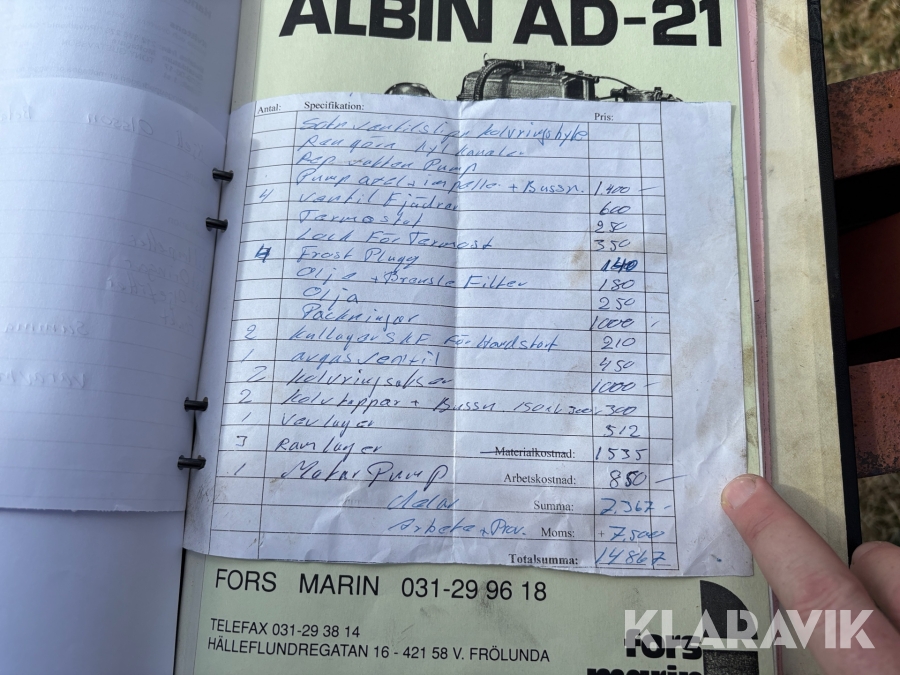 ALBIN AD-21
Antal: Specifikation: Pris:
Sotn ventilslip kolvringsbyte
Rengörn kylkanaler
Rep vatten Pump
Pump axel + impeller + Bussn. 1400 -
4 ventil Fjädrar 600
Termostat 250
Lock För Termost 350
4 Frost Plugg 140
Olja + Bränsle Filter 180
Olja 250
Packningar 1000
2 kullager SKF För Handstart 210
1 avgasventil 450
2 kolvringsatser 1000 -
2 kolvtappar + Bussn. 300
1 Vevlager 512
3 Ramlager Materialkostnad: 1535
1 Matar Pump Arbetskostnad: 850 -
Delar Summa: 7367 -
Arbete + Prov. Moms: + 7500
Totalsumma: 14867
FORS MARIN 031-29 96 18
TELEFAX 031-29 38 14
HÄLLEFLUNDREGATAN 16 - 421 58 V. FRÖLUNDA
fors
marin
KLARAVIK